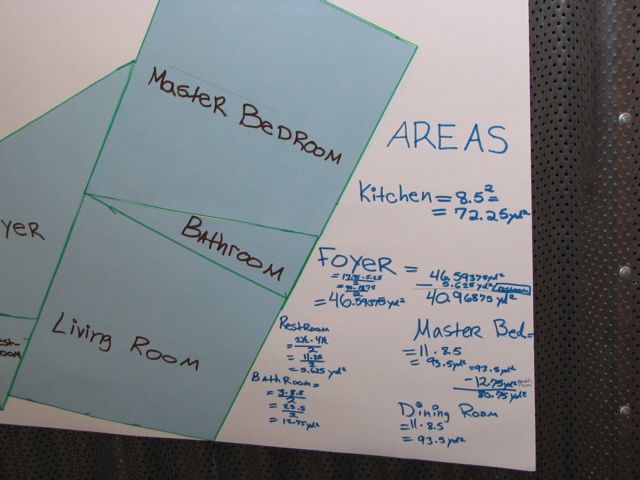 Master Bedroom
Bathroom
Living Room
yer
AREAS
Kitchen = 8.5²=
= 72.25yd²
Foyer =
= 46.59375yd²
46.59375yd²
- 5.625yd²
40.96875yd²
Restroom
= 2½ · 4½
2
= 11.25
2
= 5.625 yd²
Bathroom=
= 3·8.5
2
= 25.5
2
= 12.75yd²
Master Bed=
= 11 · 8.5
= 93.5yd²
= 93.5yd²
- 12.75yd²
80.75yd²
Dining Room
= 11 · 8.5
= 93.5yd²